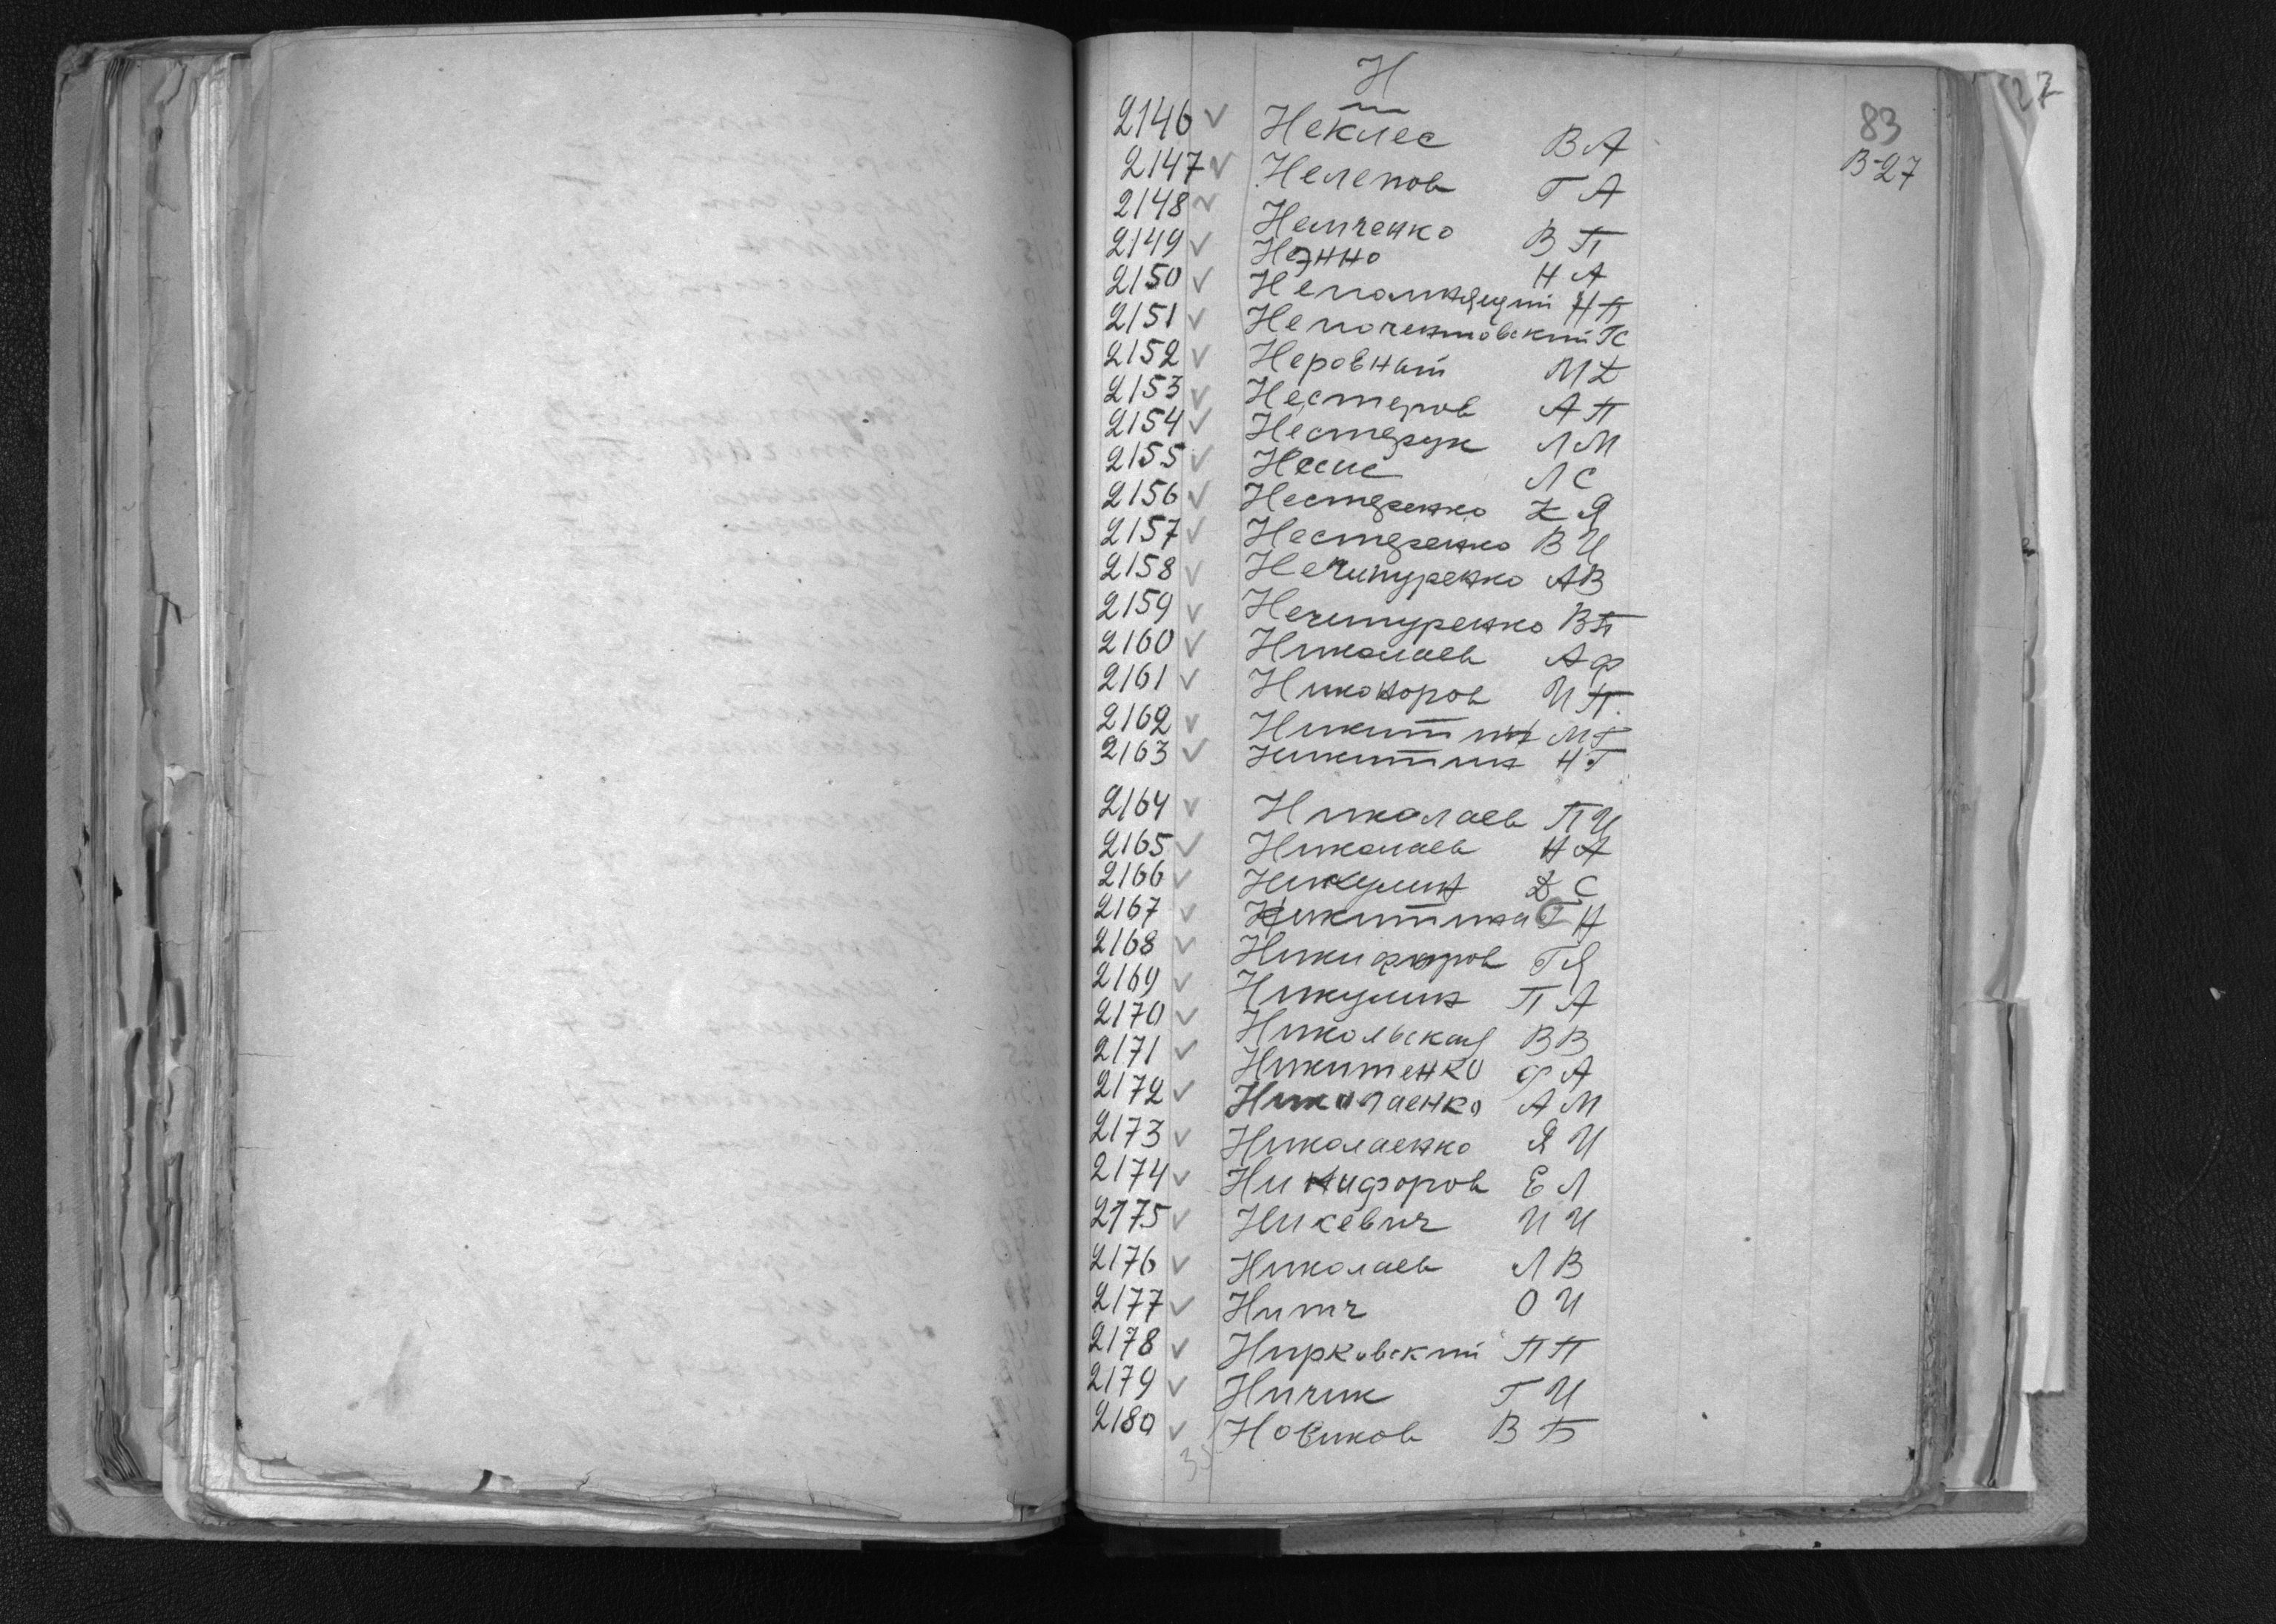 Н
27
83
В-27
2146 ✓ Неклес В А
2147 ✓ Нелепов Г А
2148 ✓ Немченко В П
2149 ✓ Н А
2150 ✓ Непомнящий Н П
2151 ✓
2152 ✓ Неровный М Д
2153 ✓ Нестеров А П
2154 ✓ Нестерук Л М
2155 ✓ Несис Л С
2156 ✓ Нестеренко Я
2157 ✓ Нестеренко В И
2158 ✓ Нечипуренко А В
2159 ✓ Нечипуренко В П
2160 ✓ Николаев А Ф
2161 ✓ Никоноров И П
2162 ✓ Никитин М Г
2163 ✓ Никитин Н Г
2164 ✓ Николаев П И
2165 ✓ Николаев Н А
2166 ✓ Никулин Д С
2167 ✓ Никитина Г Н
2168 ✓ Никифоров Г Я
2169 ✓ Никулин П А
2170 ✓ Никольская В В
2171 ✓ Никитенко Ф А
2172 ✓ Николаенко А М
2173 ✓ Николаенко Я И
2174 ✓ Никифоров Е Л
2175 ✓ Никевич И И
2176 ✓ Николаев Л В
2177 ✓ Нитч О И
2178 ✓ Нирковский П П
2179 ✓ Ничик Г И
2180 ✓ Новиков В Б
35